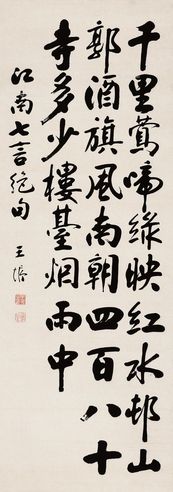 千里鶯啼綠映紅水邨山
郭酒旗風南朝四百八十
寺多少樓臺烟雨中
江南七言絕句 王